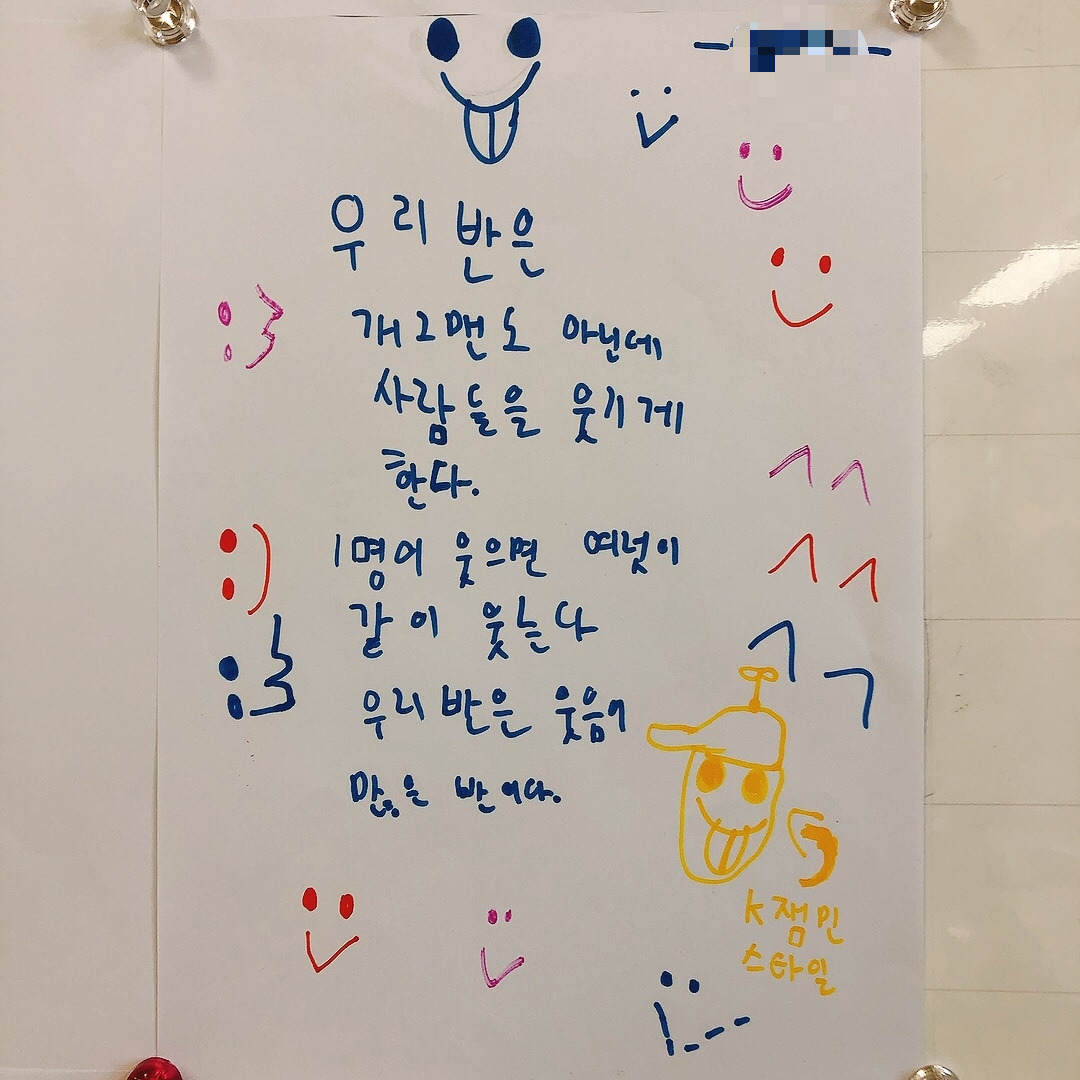 우리 반은
개그맨도 아닌데
사람들을 웃기게
한다.
1명이 웃으면 여럿이
같이 웃는다
우리 반은 웃음이
많은 반이다.
K잼민
스타일